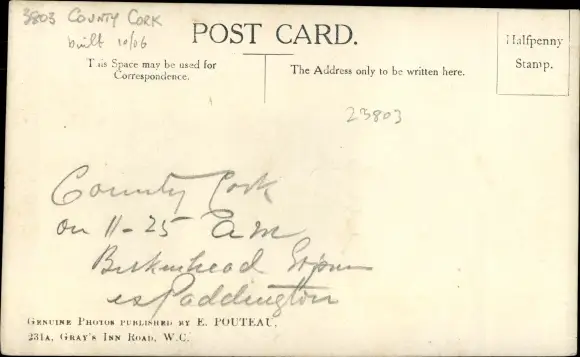 3803 COUNTY CORK
built 10/06
POST CARD.
This Space may be used for
Correspondence.
The Address only to be written here.
Halfpenny
Stamp.
23803
County Cork
on 11-25 am
Birkenhead
ex Paddington
GENUINE PHOTOS PUBLISHED BY E. POUTEAU,
231A, GRAY'S INN ROAD, W.C.